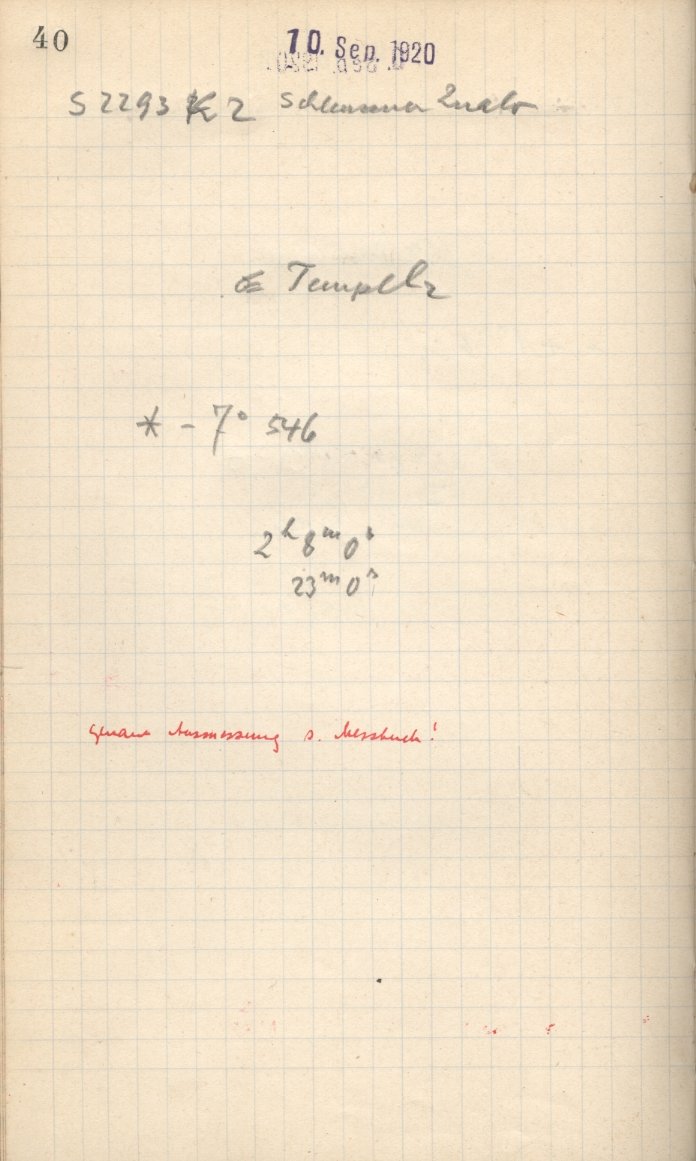 40
10. Sep. 1920
S 2293 K 2 Schleussner
Tempel 2
* - 7° 546
2ʰ 8ᵐ 0ˢ
23ᵐ 0ˢ
genaue Ausmessung s. Messbuch!